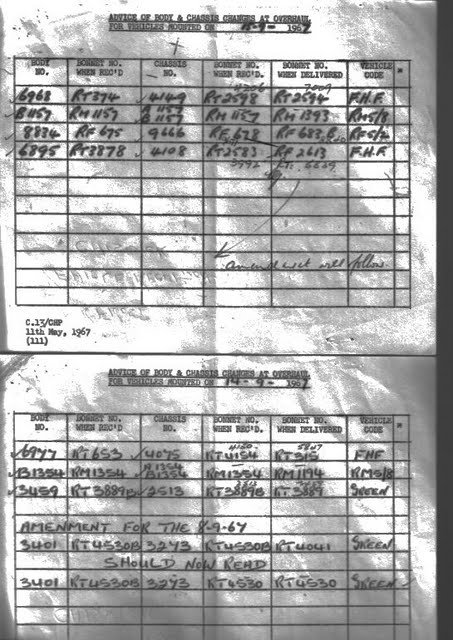 ADVICE OF BODY & CHASSIS CHANGES AT OVERHAUL
FOR VEHICLES MOUNTED ON 15-9- 1967
BODY NO. BONNET NO. WHEN REC'D. CHASSIS NO. BONNET NO. WHEN REC'D. BONNET NO. WHEN DELIVERED VEHICLE CODE
6968 RT374 4149 RT2598 RT2594 F.H.F.
B1157 RM1157 B1157 RM1157 RM1393 RM5/8
8834 RF675 9666 RF628 RF683 RF5/2
6895 RT3878 4108 RT2583 RF2613 F.H.F
amendment will follow.
C.13/CHP
11th May, 1967
(111)
ADVICE OF BODY & CHASSIS CHANGES AT OVERHAUL
FOR VEHICLES MOUNTED ON 14-9- 1967
BODY NO. BONNET NO. WHEN REC'D. CHASSIS NO. BONNET NO. WHEN REC'D. BONNET NO. WHEN DELIVERED VEHICLE CODE
4150 5847
6977 RT653 4075 RT4154 RT315 FHF
B1354 RM1354 B1354 RM1354 RM1194 RM5/8
3459 RT3889B 2513 RT3889B RT3889 GREEN
AMENMENT FOR THE 8-9-67
3401 RT4530B 3273 RT4530B RT4041 GREEN
SHOULD NOW READ
3401 RT4530B 3273 RT4530 RT4530 GREEN